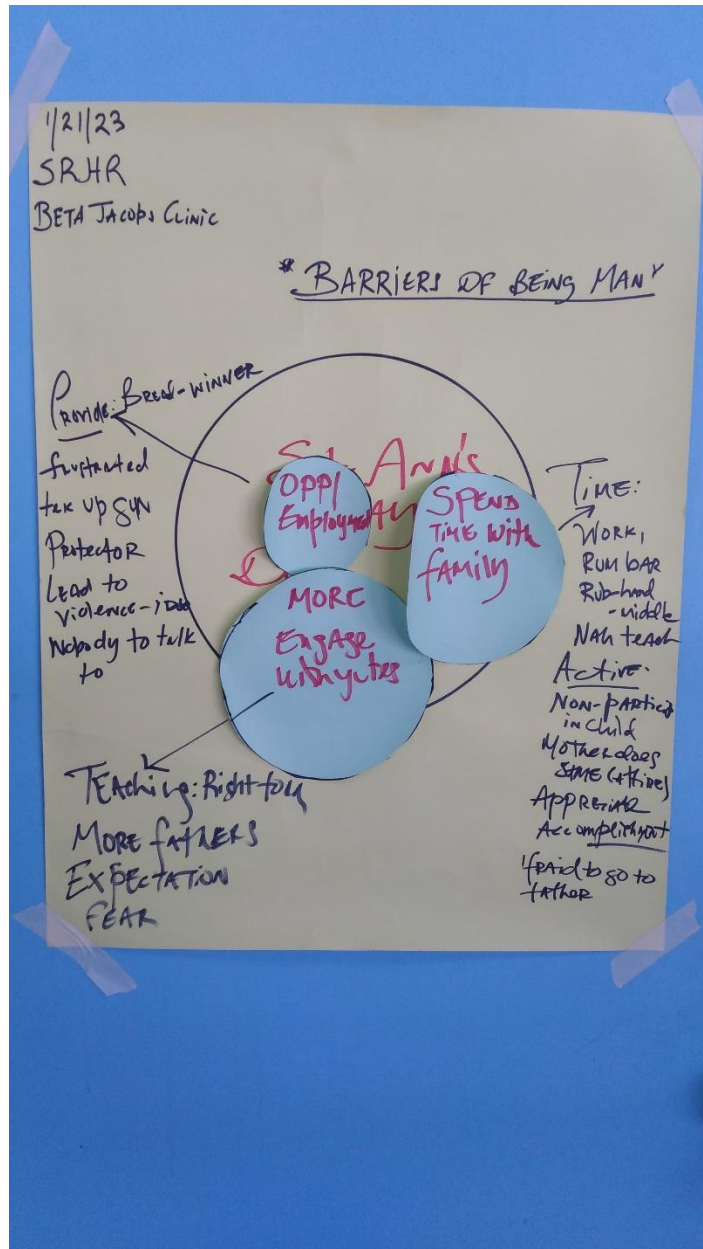 1/21/23
SRHR
BETA JACOBS CLINIC
"BARRIERS OF BEING MAN"
Provide: BREAD-WINNER
frustrated
tek up gun
Protector
Lead to
violence-
Nobody to talk
to
St. Ann's
OPP/
Employment
SPEND
TIME with
family
MORE
Engage
with yutes
TIME:
WORK,
RUM BAR
Rub-hand
-middle
Nah teach
Active.
NON-partici
in child
Mother does
SOME
APPRECIATE
Accomplishment
'fraid to go to
father
TEAChing: Right
MORE fATHERS
EXPECTATION
FEAR